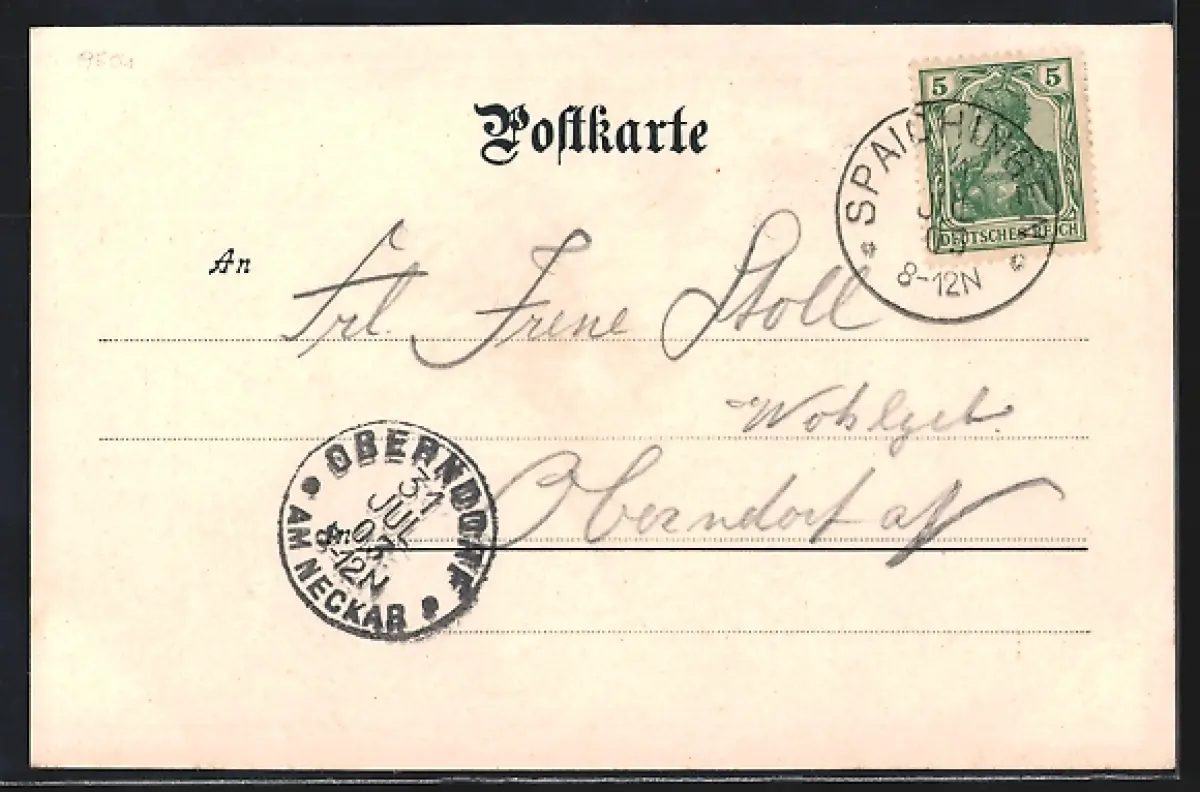 5 5
DEUTSCHES REICH
Postkarte
SPAICHINGEN
JUL
8-12N
An
Frl. Irene Stoll
Wohlgeb.
Oberndorf a/
OBERNDORF
31
JUL
8-12N
AM NECKAR
in